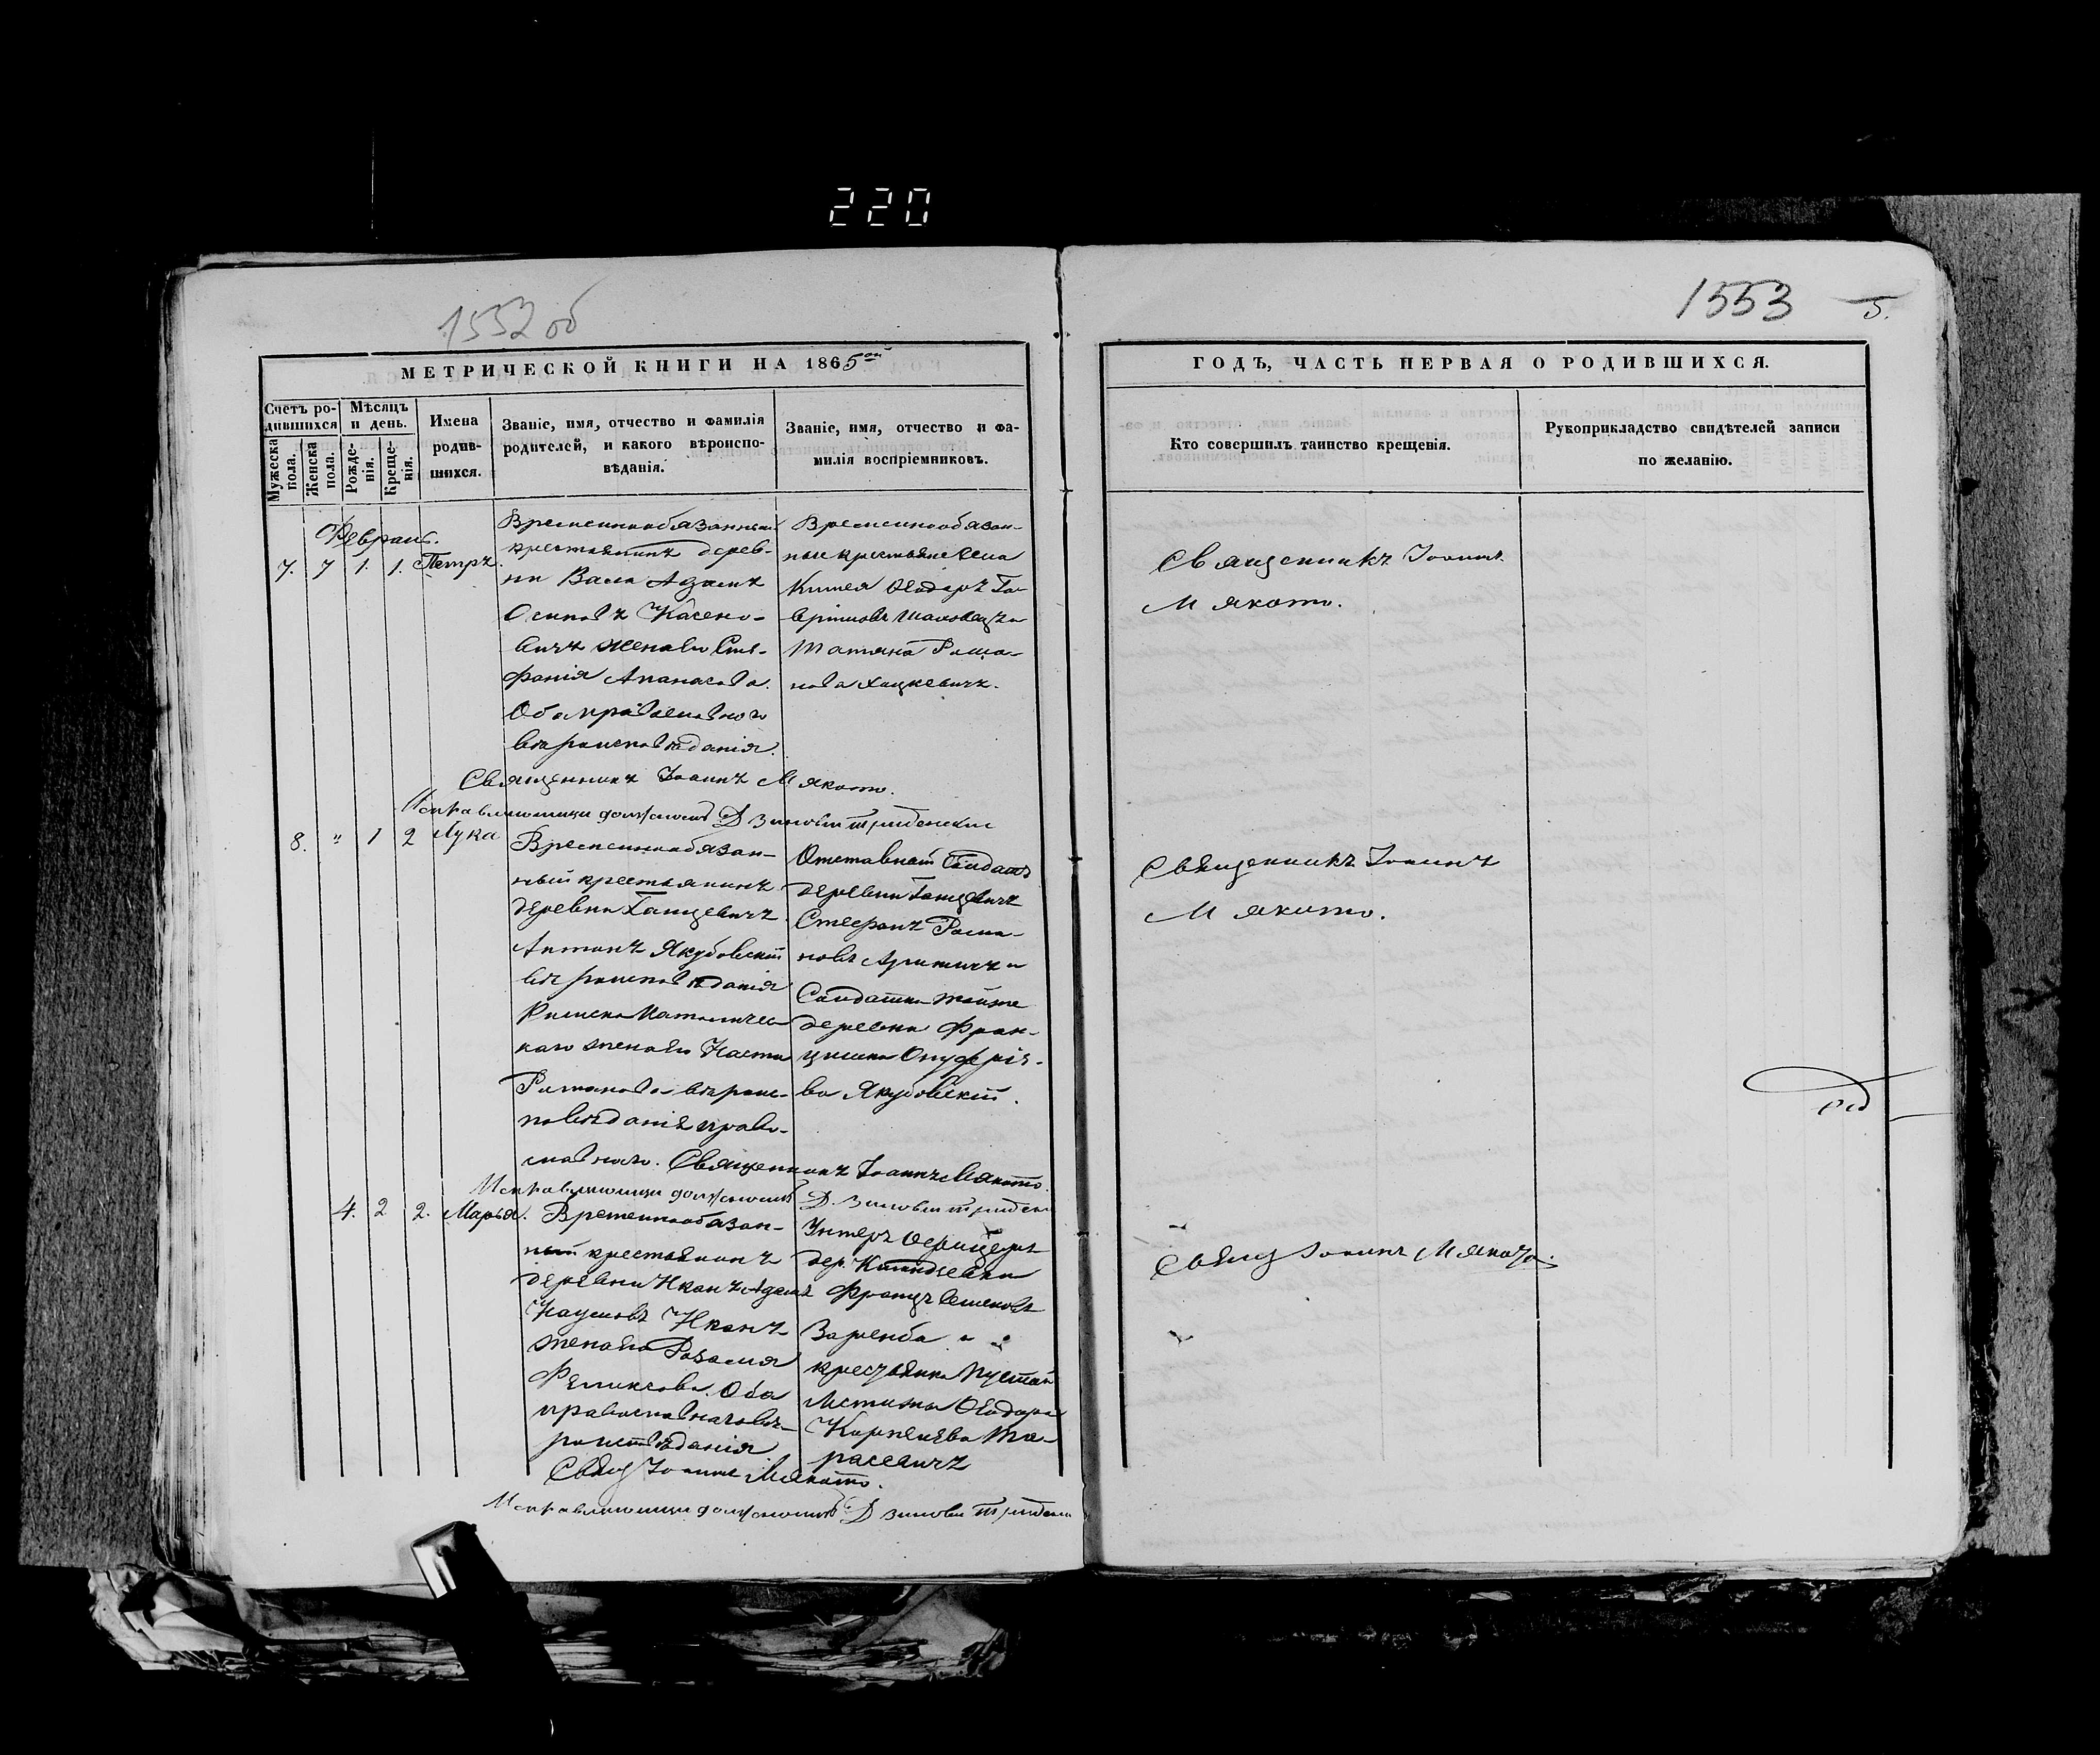 220
1552 об
1553
5.
МЕТРИЧЕСКОЙ КНИГИ НА 1865ой
ГОДЪ, ЧАСТЬ ПЕРВАЯ О РОДИВШИХСЯ.
Счетъ ро-
дившихся
Мужеска
пола.
Женска
пола.
Мѣсяцъ
и день.
Рожде-
нія.
Креще-
нія.
Имена
родив-
шихся.
Званіе, имя, отчество и фамилія
родителей, и какого вѣроиспо-
вѣданія.
Званіе, имя, отчество и фа-
милія воспріемниковъ.
Кто совершилъ таинство крещенія.
Рукоприкладство свидѣтелей записи
по желанію.
Февраль.
7. 7 1. 1. Петръ.
Временнообязанный
крестьянинъ дерев-
ни Адамъ
Осиповъ
жена его Сте-
фанія Апанасова.
Оба православного
вѣроисповѣданія.
Временнообязан-
ные крестьяне села
Ѳеодоръ Га-
и
Татяна Рома-
нова Хацкевичъ.
Священникъ Іоаннъ
Мякото.
Священникъ Іоаннъ Мякото.
Исправляющій должность Д Зиновій
8. " 1 2 Лука
Временнообязан-
ный крестьянинъ
деревни Ганцевичъ
Антонъ Якубовскій
вѣроисповѣданія
Римско Католичес-
каго жена его Настя
Романова вѣроис-
повѣданія право-
славного.
Отставной Солдатъ
деревни Ганцевичъ
Стефанъ Рома-
новъ и
Солдатка тойже
деревни Фран-
цишка Онуфріе-
ва Якубовскій.
Священникъ Іоаннъ
Мякото.
Священникъ Іоаннъ Мякото.
Исправляющій должность Д. Зиновій
4. 2 2. Марья.
Временнообязан-
ный крестьянинъ
деревни Адамъ
Наумовъ
жена его Розалія
Феликсова. Оба
православнаго вѣ-
роисповѣданія
Унтеръ Офицеръ
дер.
Францъ Семеновъ
Заремба и
крестьянка Пустой
Ѳеодора
Та-
расевичъ
Свящ Іоаннъ Мякото.
Свящ Іоаннъ Мякото.
Исправляющій должность Д Зиновій